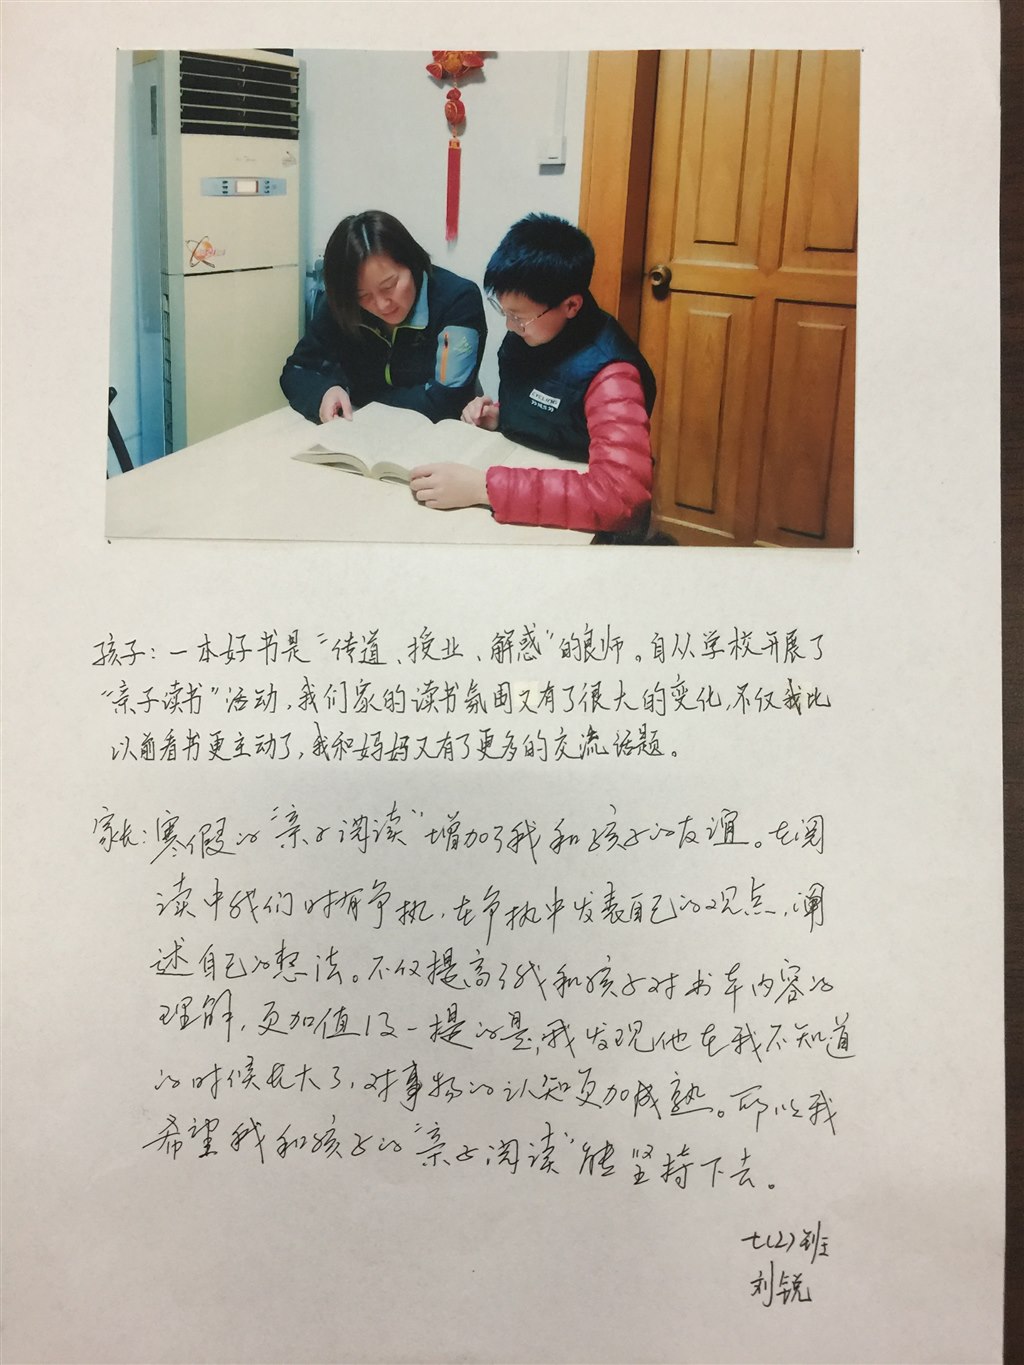 孩子：一本好书是“传道、授业、解惑”的良师。自从学校开展了
“亲子读书”活动，我们家的读书氛围又有了很大的变化，不仅我比
以前看书更主动了，我和妈妈又有了更多的交流话题。
家长：寒假的“亲子阅读”增加了我和孩子的友谊。在阅
读中我们时有争执，在争执中发表自己的观点，阐
述自己的想法。不仅提高了我和孩子对书本内容的
理解，更加值得一提的是，我发现他在我不知道
的时候长大了，对事物的认知更加成熟。所以我
希望我和孩子的“亲子阅读”能坚持下去。
七(2)班
刘锐